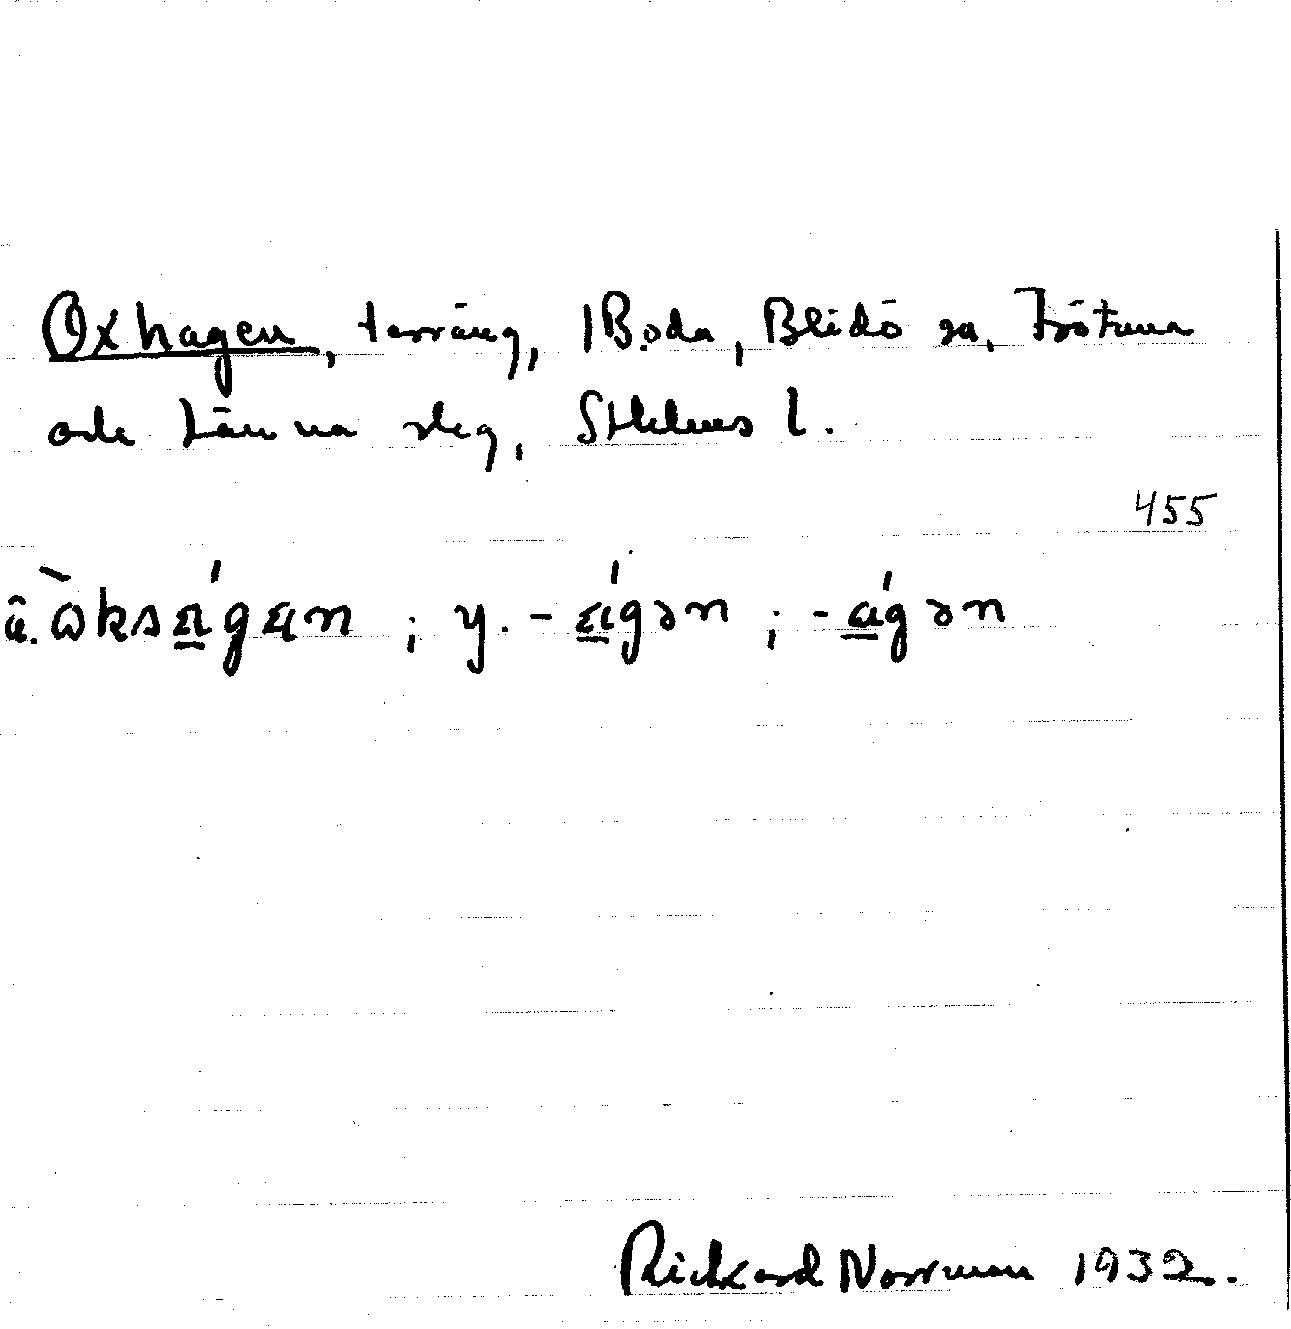 Oxhagen, terräng, Boda, Blidö sn, Frötuna
och Länna skg, Sthlms l.
455
ä. ɷ̀ksɑ́gan ; y. -ɑ́gən ; -ɑ́gən
Rickard Norrman 1932.